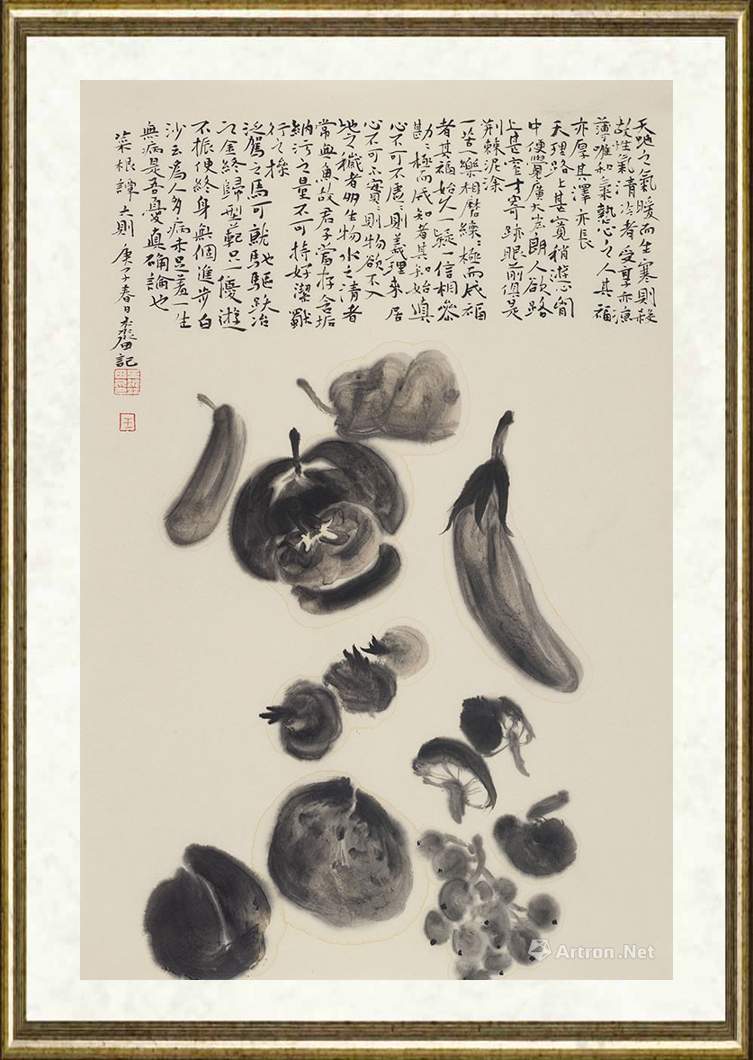 天地之氣暖而生寒則殺
故性氣清冷者受享亦涼
薄唯和氣熱心之人其福
亦厚其澤亦長
天理路上甚寬稍游心胸
中便覺廣大宏朗人欲路
上甚窄才寄跡眼前俱是
荊棘泥涂
一苦一樂相磨練〻極而成福
者其福始久一疑一信相參
勘〻極而成知者其知始真
心不可不虛〻則義理來居
心不可不實〻則物欲不入
地之穢者多生物水之清者
常無魚故君子當存含垢
納污之量不可持好潔獨
行之操
泛駕之馬可就馳驅跃冶
之金終歸型範只一優游
不振便終身無個進步白
沙云為人多病未足羞一生
無病是吾憂真確論也
菜根譚六則 庚子春日 記
王
Artron.Net